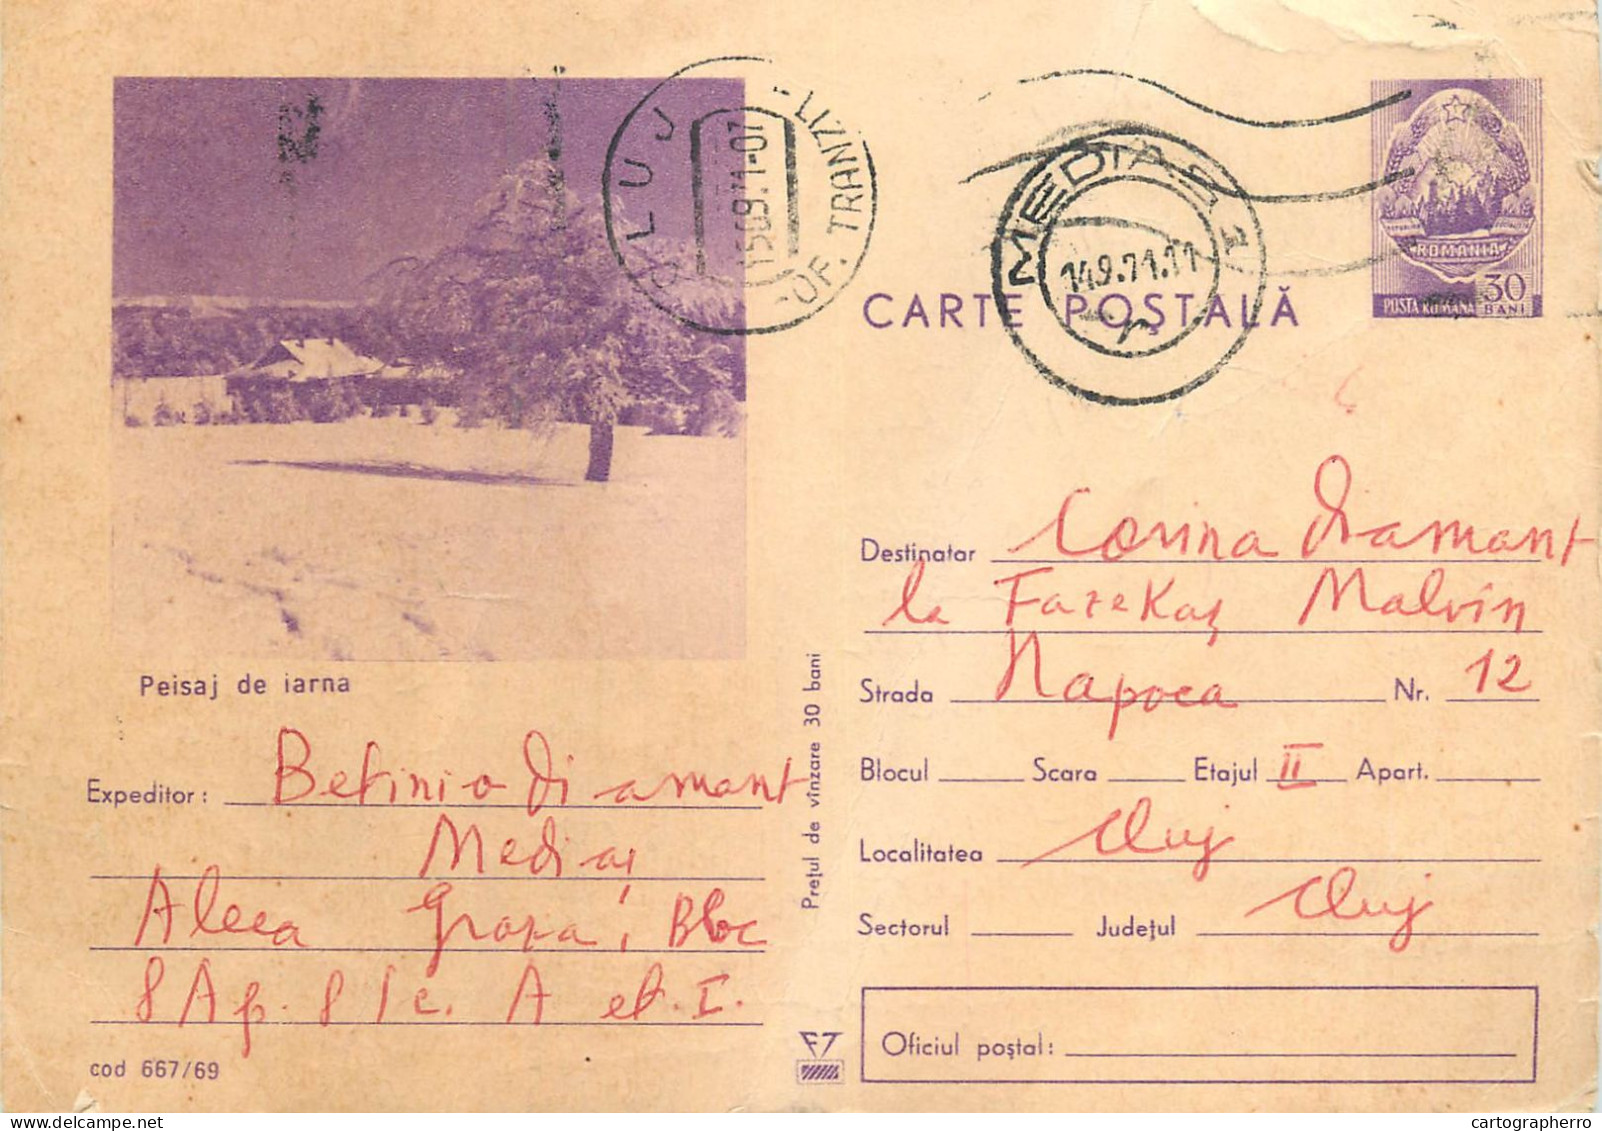 CLUJ
-OF. TRANZIT-
1509.71-07
MEDIAȘ 1
14.9.71.11
ROMANIA
POSTA ROMANA 30 BANI
CARTE POȘTALĂ
Peisaj de iarna
Expeditor: Betinio Diamant
Mediaș
Aleea Groza, Bloc
8 Ap. 8 Sc. A et. I.
cod 667/69
Prețul de vînzare 30 bani
Destinatar Corina Diamant
la Fazekaș Malvin
Strada Napoca Nr. 12
Blocul Scara Etajul II Apart.
Localitatea Cluj
Sectorul Județul Cluj
Oficiul poștal:
cartographerro